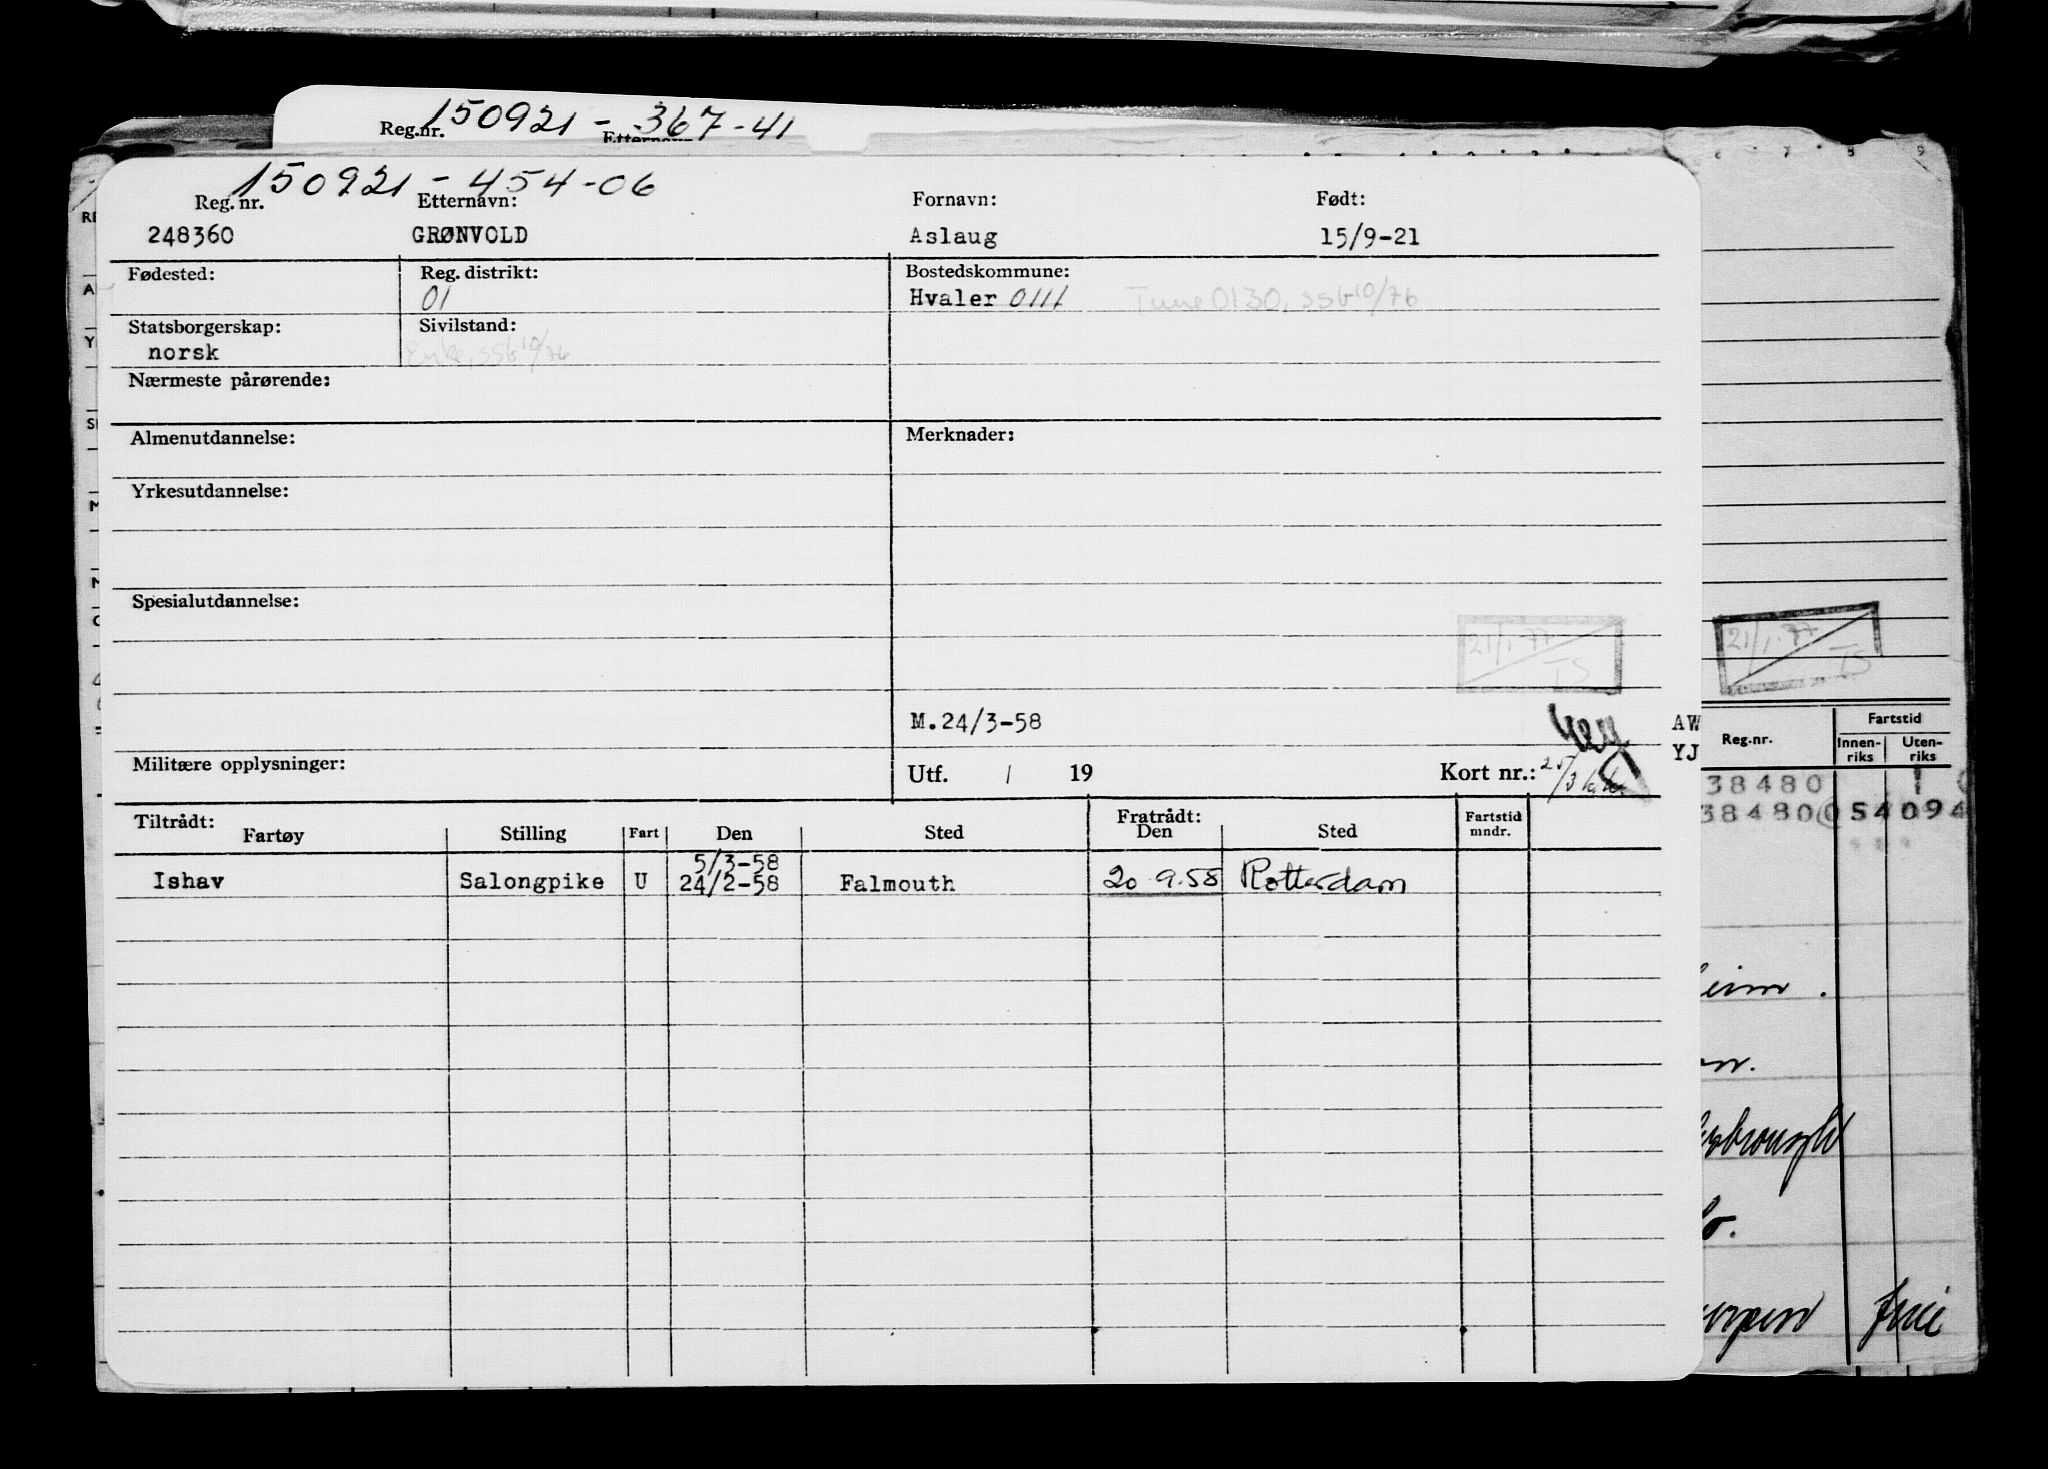 150921 - 367-41
Reg.nr. Etternavn
150921 - 454-06
Reg. nr. Etternavn: Fornavn: Født:
248360 GRØNVOLD Aslaug 15/9-21
Fødested: Reg. distrikt: Bostedskommune:
01 Hvaler 0111 Tune 0130, ssb 10/76
Statsborgerskap: Sivilstand:
norsk Enke, ssb 10/76
Nærmeste pårørende:
Almenutdannelse: Merknader:
Yrkesutdannelse:
Spesialutdannelse:
21/1-77
TS
21/1-77
TS
M.24/3-58
AW
YJ
Militære opplysninger: Utf. / 19 Kort nr.: 25/3
Reg.nr. Fartstid
Innen-riks Uten-riks
38480 1
38480 054 094
Tiltrådt: Fratrådt:
Fartøy Stilling Fart Den Sted Den Sted Fartstid mndr.
5/3-58
Ishav Salongpike U 24/2-58 Falmouth 20.9.58 Rotterdam